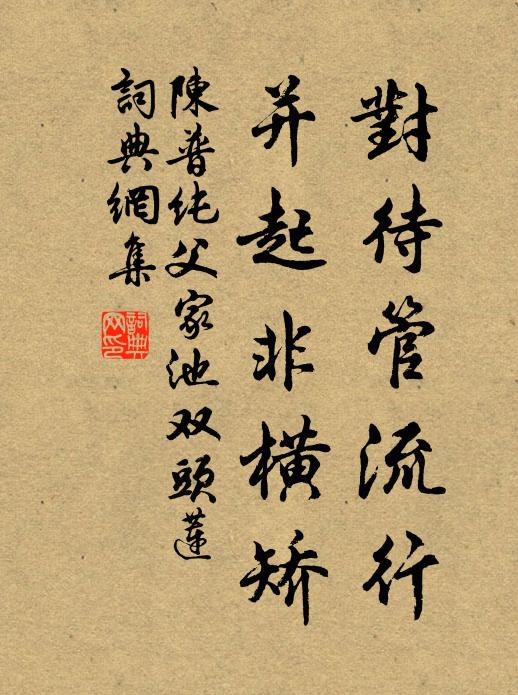 對待管流行
并起非橫矯
陳普纯父家池双頭蓮
詞典網集
詞典
网印